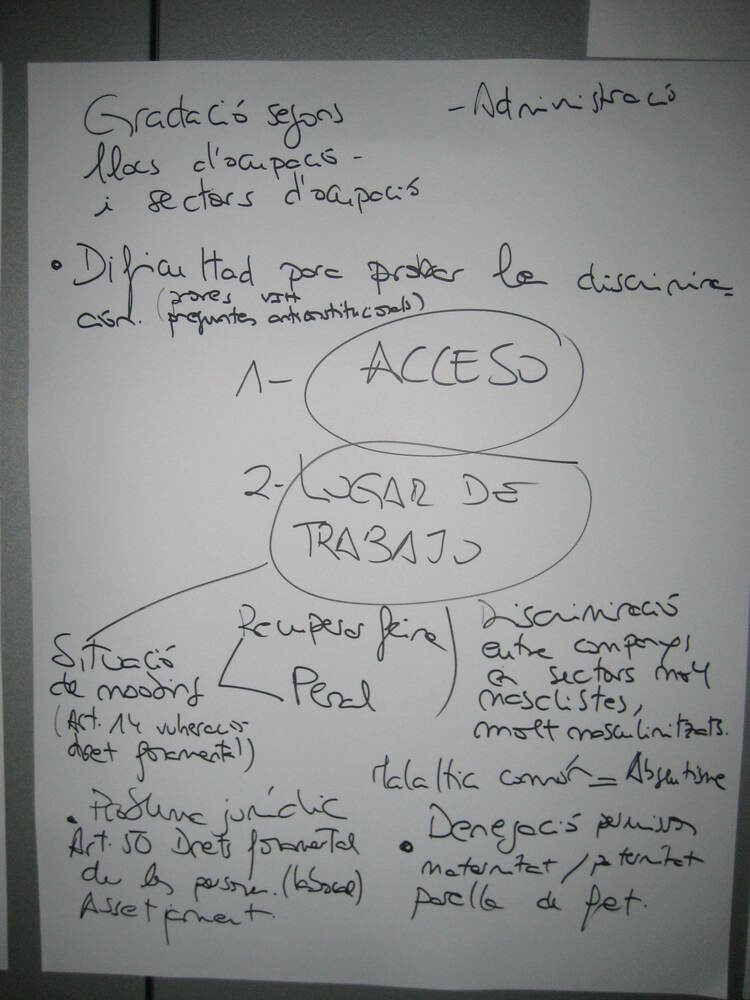 Gradació segons
llocs d'ocupació -
i sectors d'ocupació
- Administració
• Dificultad para probar la discrimina=
ción. (proves VIH
preguntes anticonstitucionals)
1- ACCESO
2- LUGAR DE
TRABAJO
Situació
de mobbing
(Art. 14 vulneració
dret fonamental)
Recuperar feina
Penal
Discriminació
entre companys
en sectors molt
masclistes,
molt masculinitzats.
Malaltia comú = Absentisme
• Problema jurídic
Art. 50 Drets fonamental
de les persones. (laboral)
Assetjament
• Denegació permisos
maternitat / paternitat
parella de fet.